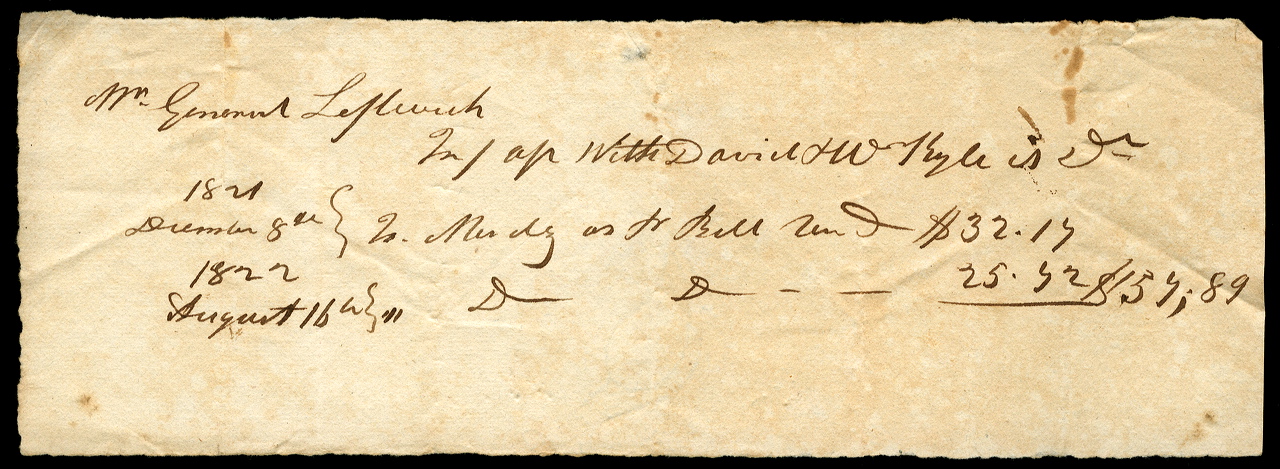 Mr. General Leftwich
In/ a/c With David & Wm Kyle is Dr
1821
December 8th } To Merdz as Pr Bill ren D $32.17
1822
August 16th } " D D - - 25.72 $57,89